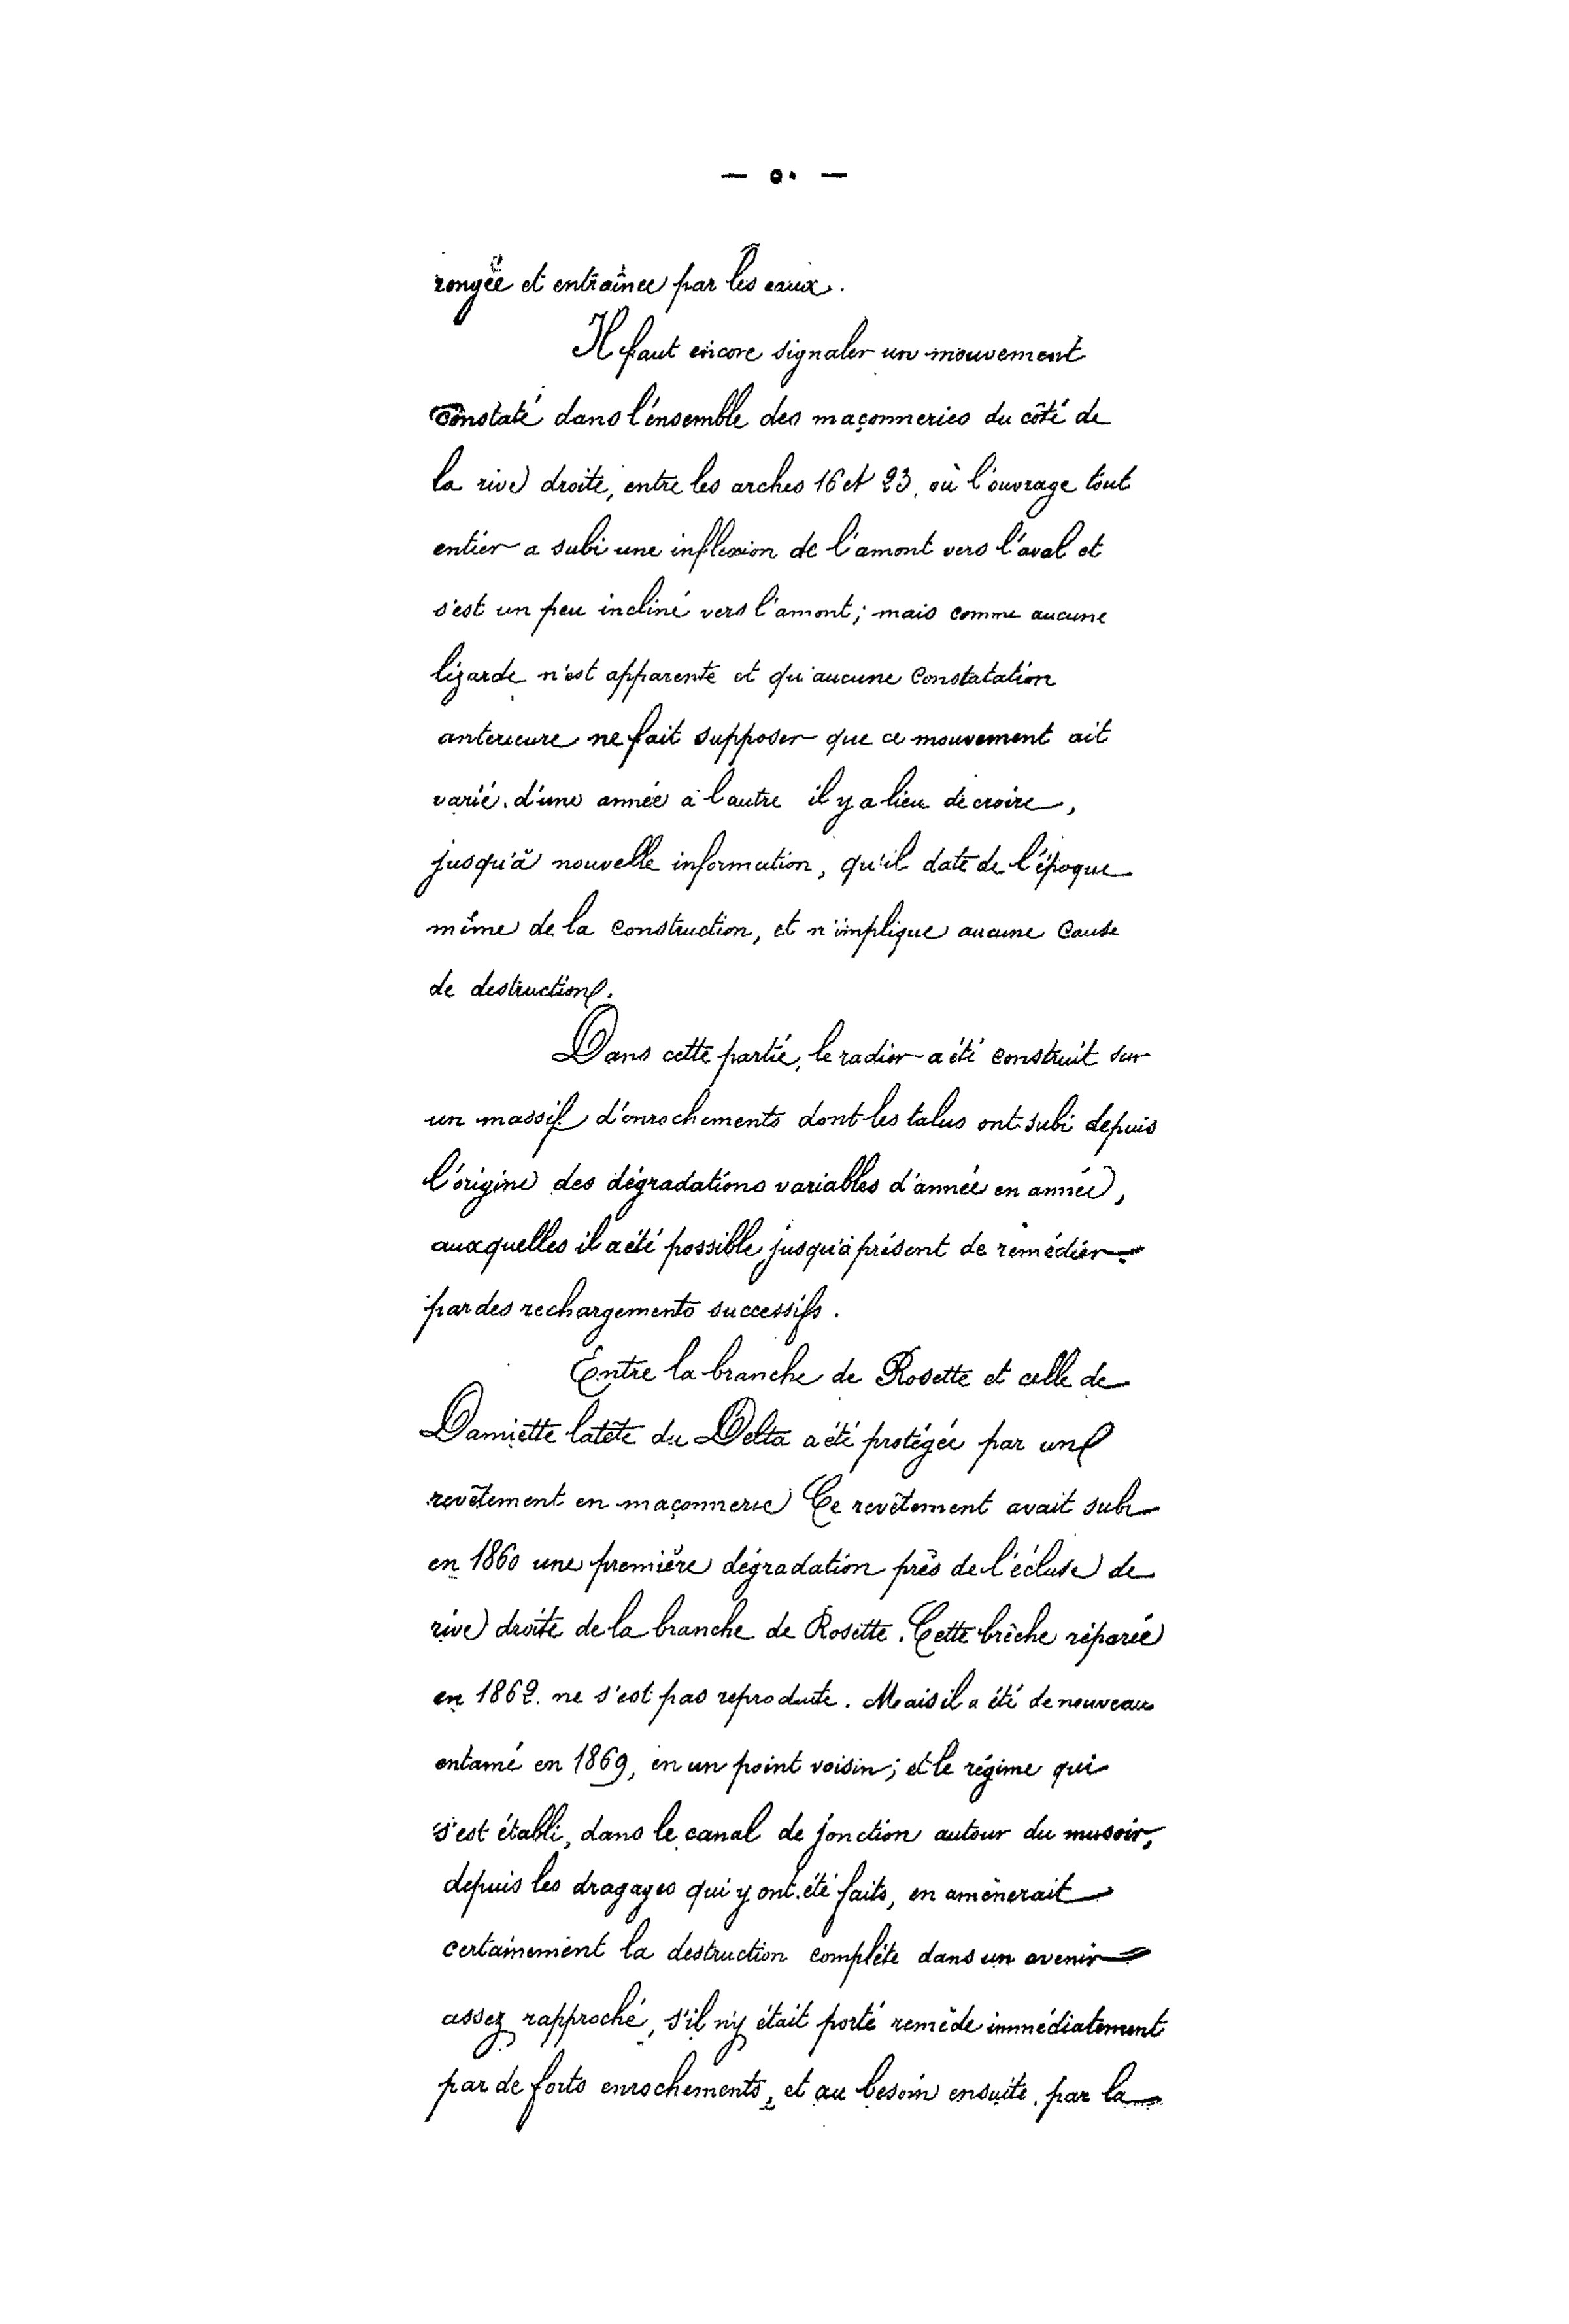 — ٥٠ —
rongée et entraînée par les eaux.
Il faut encore signaler un mouvement
constaté dans l'ensemble des maçonneries du côté de
la rive droite, entre les arches 16 et 23, où l'ouvrage tout
entier a subi une inflexion de l'amont vers l'aval et
s'est un peu incliné vers l'amont; mais comme aucune
lézarde n'est apparente et qu'aucune constatation
antérieure ne fait supposer que ce mouvement ait
varié d'une année à l'autre il y a lieu de croire,
jusqu'à nouvelle information, qu'il date de l'époque
même de la construction, et n'implique aucune cause
de destruction.
Dans cette partie, le radier a été construit sur
un massif d'enrochements dont les talus ont subi depuis
l'origine des dégradations variables d'année en année,
auxquelles il a été possible jusqu'à présent de remédier
par des rechargements successifs.
Entre la branche de Rosette et celle de
Damiette la tête du Delta a été protégée par un
revêtement en maçonnerie Ce revêtement avait subi
en 1860 une première dégradation près de l'écluse de
rive droite de la branche de Rosette. Cette brèche réparée
en 1862. ne s'est pas reproduite. Mais il a été de nouveau
entamé en 1869, en un point voisin; et le régime qui
s'est établi, dans le canal de jonction autour du musoir,
depuis les dragages qui y ont été faits, en amènerait
certainement la destruction complète dans un avenir
assez rapproché, s'il n'y était porté remède immédiatement
par de forts enrochements, et au besoin ensuite, par la